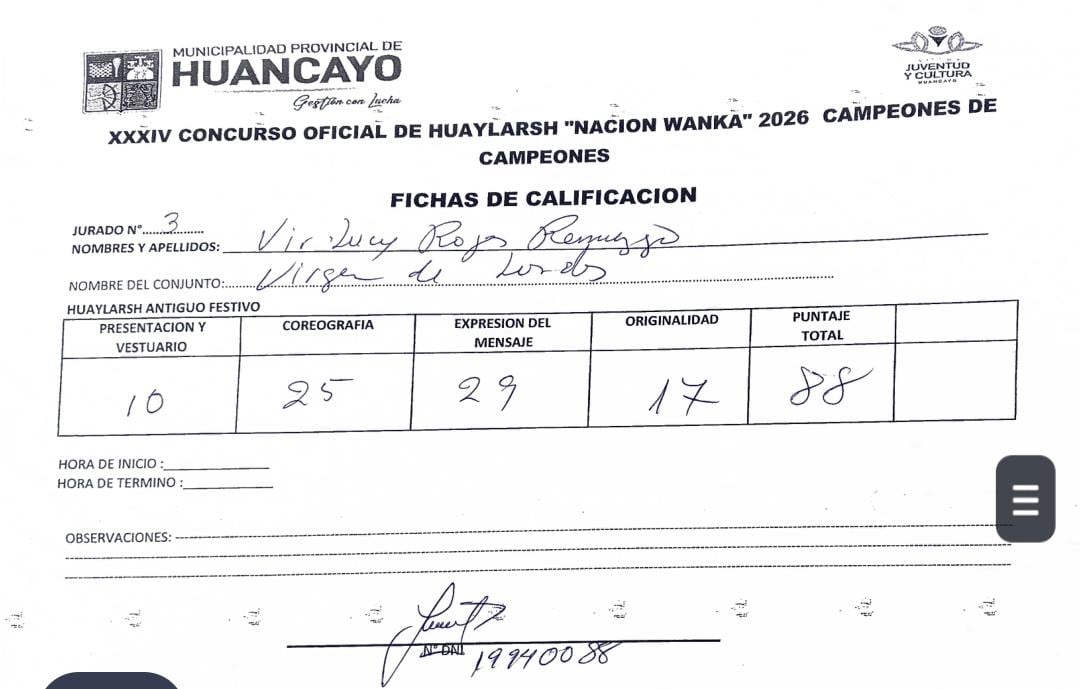 MUNICIPALIDAD PROVINCIAL DE
HUANCAYO
Gestión con Lucha
JUVENTUD
Y CULTURA
HUANCAYO
XXXIV CONCURSO OFICIAL DE HUAYLARSH "NACION WANKA" 2026 CAMPEONES DE
CAMPEONES
FICHAS DE CALIFICACION
JURADO N°......3........
NOMBRES Y APELLIDOS: Lucy Rojas
NOMBRE DEL CONJUNTO: Virgen de Lordes
HUAYLARSH ANTIGUO FESTIVO
PRESENTACION Y VESTUARIO COREOGRAFIA EXPRESION DEL MENSAJE ORIGINALIDAD PUNTAJE TOTAL
10 25 29 17 88
HORA DE INICIO :
HORA DE TERMINO :
OBSERVACIONES:
N° DNI 19940088